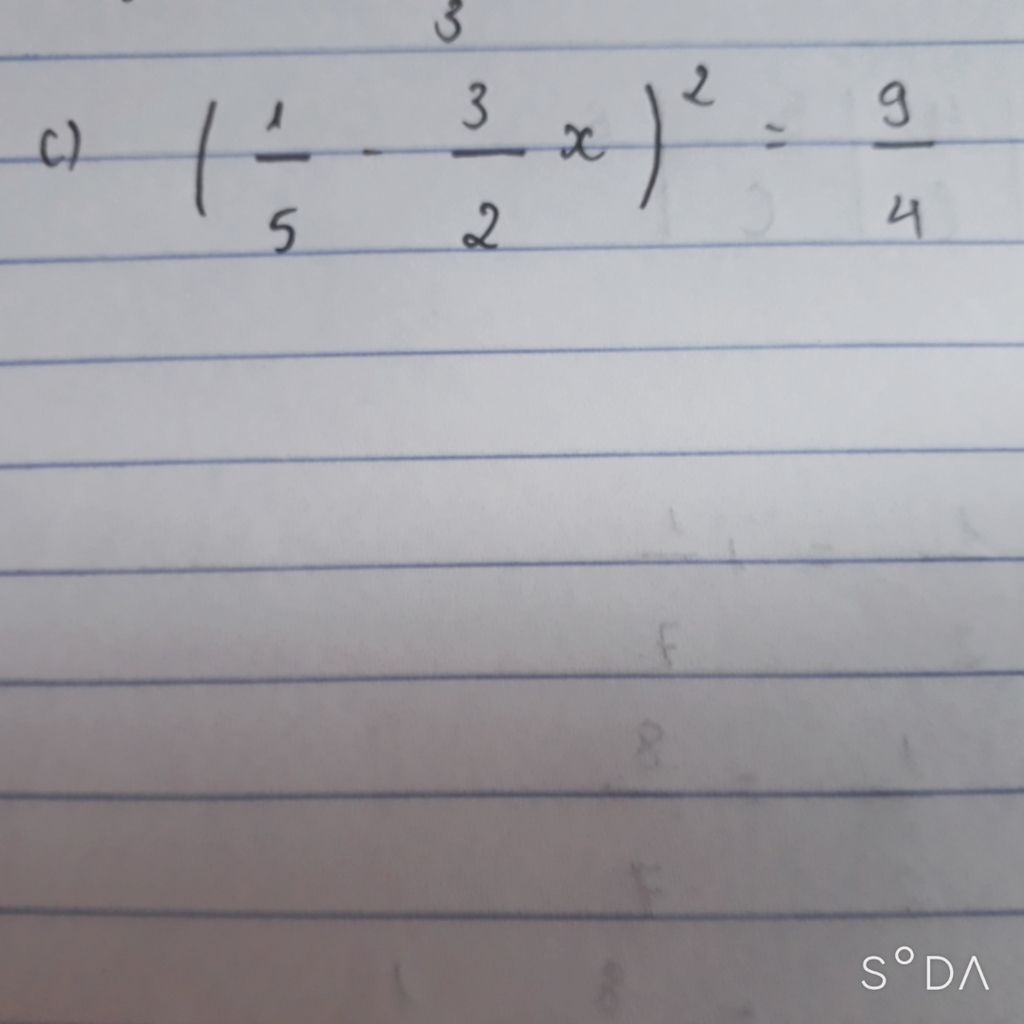 3
c) ( 1/5 - 3/2 x )² = 9/4
S°DA